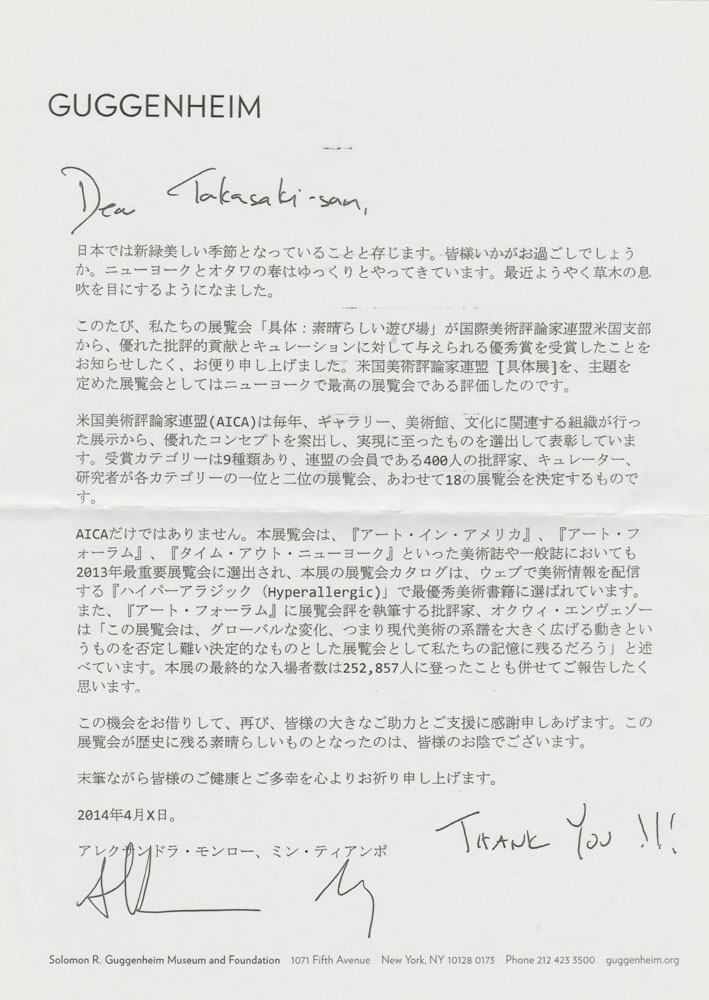 GUGGENHEIM
Dear Takasaki-san,
日本では新緑美しい季節となっていることと存じます。皆様いかがお過ごしでしょう
か。ニューヨークとオタワの春はゆっくりとやってきています。最近ようやく草木の息
吹を目にするようになました。
このたび、私たちの展覧会「具体：素晴らしい遊び場」が国際美術評論家連盟米国支部
から、優れた批評的貢献とキュレーションに対して与えられる優秀賞を受賞したことを
お知らせしたく、お便り申し上げました。米国美術評論家連盟 [具体展]を、主題を
定めた展覧会としてはニューヨークで最高の展覧会である評価したのです。
米国美術評論家連盟(AICA)は毎年、ギャラリー、美術館、文化に関連する組織が行っ
た展示から、優れたコンセプトを案出し、実現に至ったものを選出して表彰していま
す。受賞カテゴリーは9種類あり、連盟の会員である400人の批評家、キュレーター、
研究者が各カテゴリーの一位と二位の展覧会、あわせて18の展覧会を決定するもので
す。
AICAだけではありません。本展覧会は、『アート・イン・アメリカ』、『アート・フ
ォーラム』、『タイム・アウト・ニューヨーク』といった美術誌や一般誌においても
2013年最重要展覧会に選出され、本展の展覧会カタログは、ウェブで美術情報を配信
する『ハイパーアラジック（Hyperallergic)」で最優秀美術書籍に選ばれています。
また、『アート・フォーラム』に展覧会評を執筆する批評家、オクウィ・エンヴェゾー
は「この展覧会は、グローバルな変化、つまり現代美術の系譜を大きく広げる動きとい
うものを否定し難い決定的なものとした展覧会として私たちの記憶に残るだろう」と述
べています。本展の最終的な入場者数は252,857人に登ったことも併せてご報告したく
思います。
この機会をお借りして、再び、皆様の大きなご助力とご支援に感謝申しあげます。この
展覧会が歴史に残る素晴らしいものとなったのは、皆様のお陰でございます。
末筆ながら皆様のご健康とご多幸を心よりお祈り申し上げます。
2014年4月X日。
THANK YOU !!!
アレクサンドラ・モンロー、ミン・ティアンポ
Solomon R. Guggenheim Museum and Foundation 1071 Fifth Avenue New York, NY 10128 0173 Phone 212 423 3500 guggenheim.org